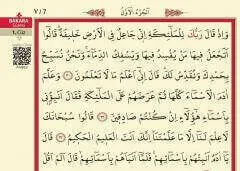 اَلْجُزْءُ الْاَوَّلُ
BAKARA
1. Cüz
وَاِذْ قَالَ رَبُّكَ لِلْمَلٰٓئِكَةِ اِنّٖي جَاعِلٌ فِي الْاَرْضِ خَلٖيفَةً قَالُٓوا
اَتَجْعَلُ فٖيهَا مَنْ يُفْسِدُ فٖيهَا وَيَسْفِكُ الدِّمَٓاءَ وَنَحْنُ نُسَبِّحُ
بِحَمْدِكَ وَنُقَدِّسُ لَكَ قَالَ اِنّٖٓي اَعْلَمُ مَا لَا تَعْلَمُونَ ﴿٣٠﴾ وَعَلَّمَ
اٰدَمَ الْاَسْمَٓاءَ كُلَّهَا ثُمَّ عَرَضَهُمْ عَلَى الْمَلٰٓئِكَةِ فَقَالَ اَنْبِؤُ۫نٖي
بِاَسْمَٓاءِ هٰٓؤُلَٓاءِ اِنْ كُنْتُمْ صَادِقٖينَ ﴿٣١﴾ قَالُوا سُبْحَانَكَ
لَا عِلْمَ لَنَٓا اِلَّا مَا عَلَّمْتَنَا اِنَّكَ اَنْتَ الْعَلٖيمُ الْحَكٖيمُ ﴿٣٢﴾ قَالَ
يَٓا اٰدَمُ اَنْبِئْهُمْ بِاَسْمَٓائِهِمْ فَلَمَّٓا اَنْبَاَهُمْ بِاَسْمَٓائِهِمْ قَالَ اَلَمْ اَقُلْ